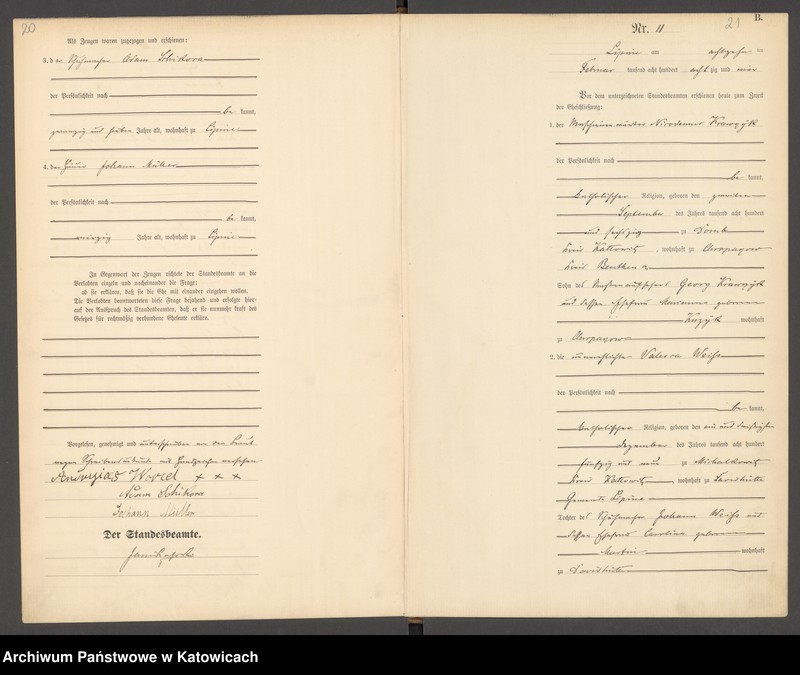 20
Als Zeugen waren zugezogen und erschienen:
3. der Schuhmacher Adam Schikora
der Persönlichkeit nach
be kannt,
zwanzig und sieben Jahre alt, wohnhaft zu Lipine
4. der Häuer Johann Müller
der Persönlichkeit nach
be kannt,
vierzig Jahre alt, wohnhaft zu Lipine
In Gegenwart der Zeugen richtete der Standesbeamte an die
Verlobten einzeln und nacheinander die Frage:
ob sie erklären, daß sie die Ehe mit einander eingehen wollen.
Die Verlobten beantworteten diese Frage bejahend und erfolgte hier-
auf der Ausspruch des Standesbeamten, daß er sie nunmehr kraft des
Gesetzes für rechtmäßig verbundene Eheleute erkläre.
Vorgelesen, genehmigt und unterschrieben von der Braut
wegen Schreibensunkunde mit Handzeichen versehen
+ + +
Adam Schikora
Johann Müller
Der Standesbeamte.
21
B.
Nr. 11
Lipine am achtzehn ten
Februar tausend acht hundert acht zig und
Vor dem unterzeichneten Standesbeamten erschienen heute zum Zweck
der Eheschließung:
1. der Maschinenwärter Krawczyk
der Persönlichkeit nach
be kannt,
katholischer Religion, geboren den zweiten
September des Jahres tausend acht hundert
und sechszig zu Domb
Kreis Kattowitz, wohnhaft zu Chropaczow
Kreis Beuthen
Sohn des Georg Krawczyk
und dessen Ehefrau Marianna geborene
wohnhaft
zu Chropaczow
2. die unverehelichte Valesca Weiss
der Persönlichkeit nach
be kannt,
katholischer Religion, geboren den ein und dreißigsten
Dezember des Jahres tausend acht hundert
fünfzig und neun zu Michalkowitz
Kreis Kattowitz wohnhaft zu Davidhütte
Gemeinde Lipine
Tochter des Schuhmacher Johann Weiss und
dessen Ehefrau Caroline geborene
Martin wohnhaft
zu Davidhütte
Archiwum Państwowe w Katowicach